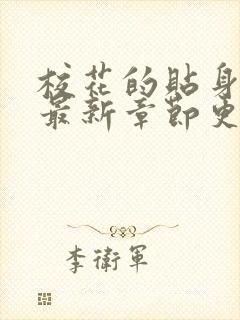 校花的貼身
最新章節更
李衛軍